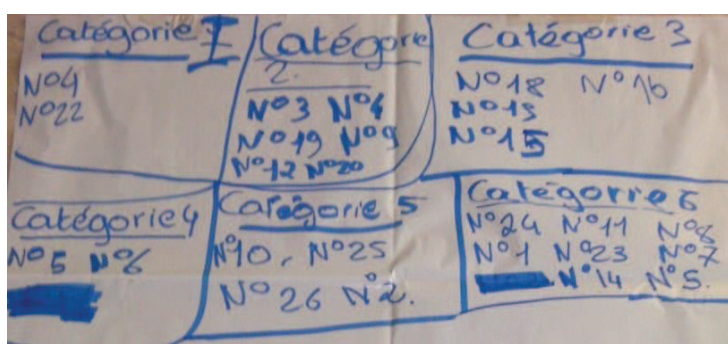 Catégorie I
N°4
N°22
Catégorie
2.
N°3 N°4
N°19 N°9
N°12 N°20
Catégorie 3
N°18 N°16
N°13
N°15
Catégorie 4
N°5 N°6
Catégorie 5
N°10, N°25
N°26 N°2.
Catégorie 6
N°24 N°11 N°8
N°1 N°23 N°7
N°14 N°5.